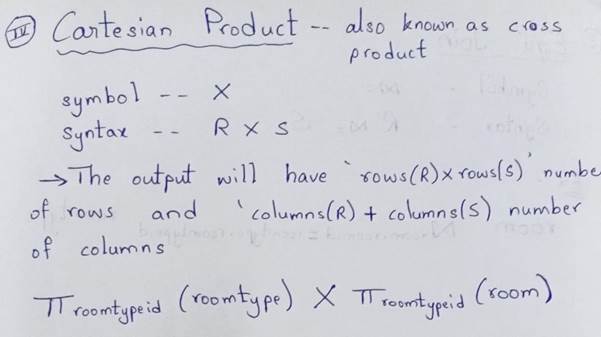 IV Cartesian Product -- also known as cross
product
symbol -- X
Syntax -- R X S
→ The output will have 'rows(R)xrows(S)' numbe
of rows and 'columns(R) + columns(S) number
of columns
π roomtypeid (roomtype) X π roomtypeid (room)